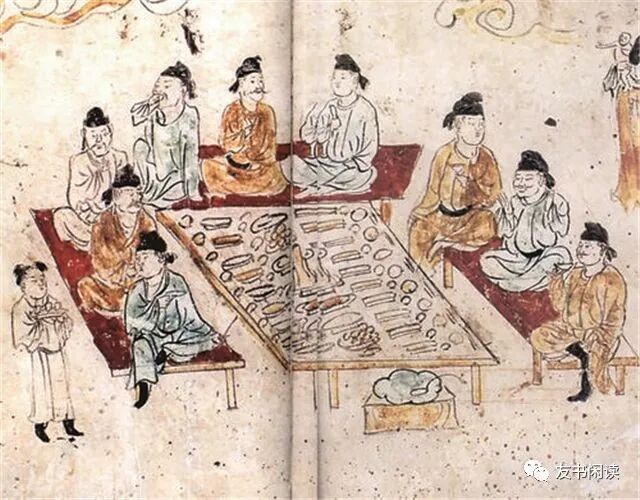 友书闲读